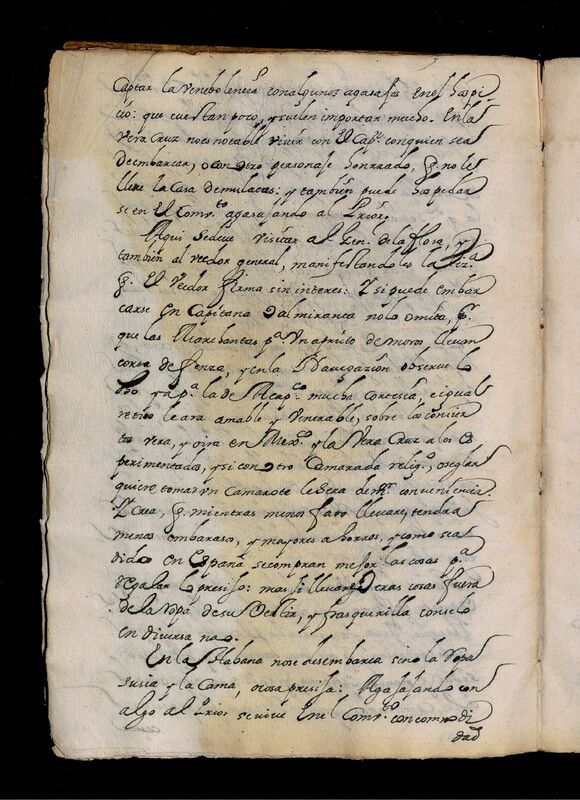 Captar la venebolencia con algunos agasajos en el hospi
cio: que cuestan poco, y suelen importar mucho. En la
vera Cruz no es notable vivir con el Cap.n con quien se a
de embarcar, o con otro personaje honrrado, q. no le
llene la Casa de mulatas: y tambien puede hospedar
se en el Comv.to agasajando al Prior.
Aqui se deve visitar al Gen.l de la flota, y
tambien al veedor general, manifestandoles la liz.a
q. el Veedor firma sin interes: Y si puede embar
carse en Capitana o almiranta no lo omita, q.
que las Marchantas p.a un aprieto de moros llevan
corta defensa, y en la Navegazion observe lo
dho y a p.a la de Acap.co mucha cortesia, e igual
retiro le ara amable y venerable, sobre lo
vera, y oira en Mex.co y la Vera Cruz a los es
perimentados, y si con otro Camarada relig.o, o seglar
quiere tomar un Camarote le sera de m.r conveniencia.
Y crea, q. mientras menos fato llevare, tendra
menos embaraso, y mayores ahorros, y como sea
dicho en España se compran mejor las cosas p.a
regalar lo presiso: mas si llevare otras cosas fuera
de la ropa de su Vestir, y frasquerilla
en diversa nao.
En la Habana no se desembarca sino la ropa
susia y la Cama, o cosa presisa: Agasajando con
algo al Prior se vive en el Comv.to con comodi
dad